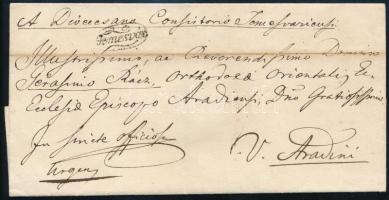 A Dioecesano Consistorio Temesvariensi
Temesvar
Illustrissimo, ac Reverendissimo Domino
Serafino Rácz, Orthodoxae Orientalis
Ecclesiae Episcopo Aradiensi, Dno Gratiosissimo
In stricte officiosis
Urgens
V. Aradini